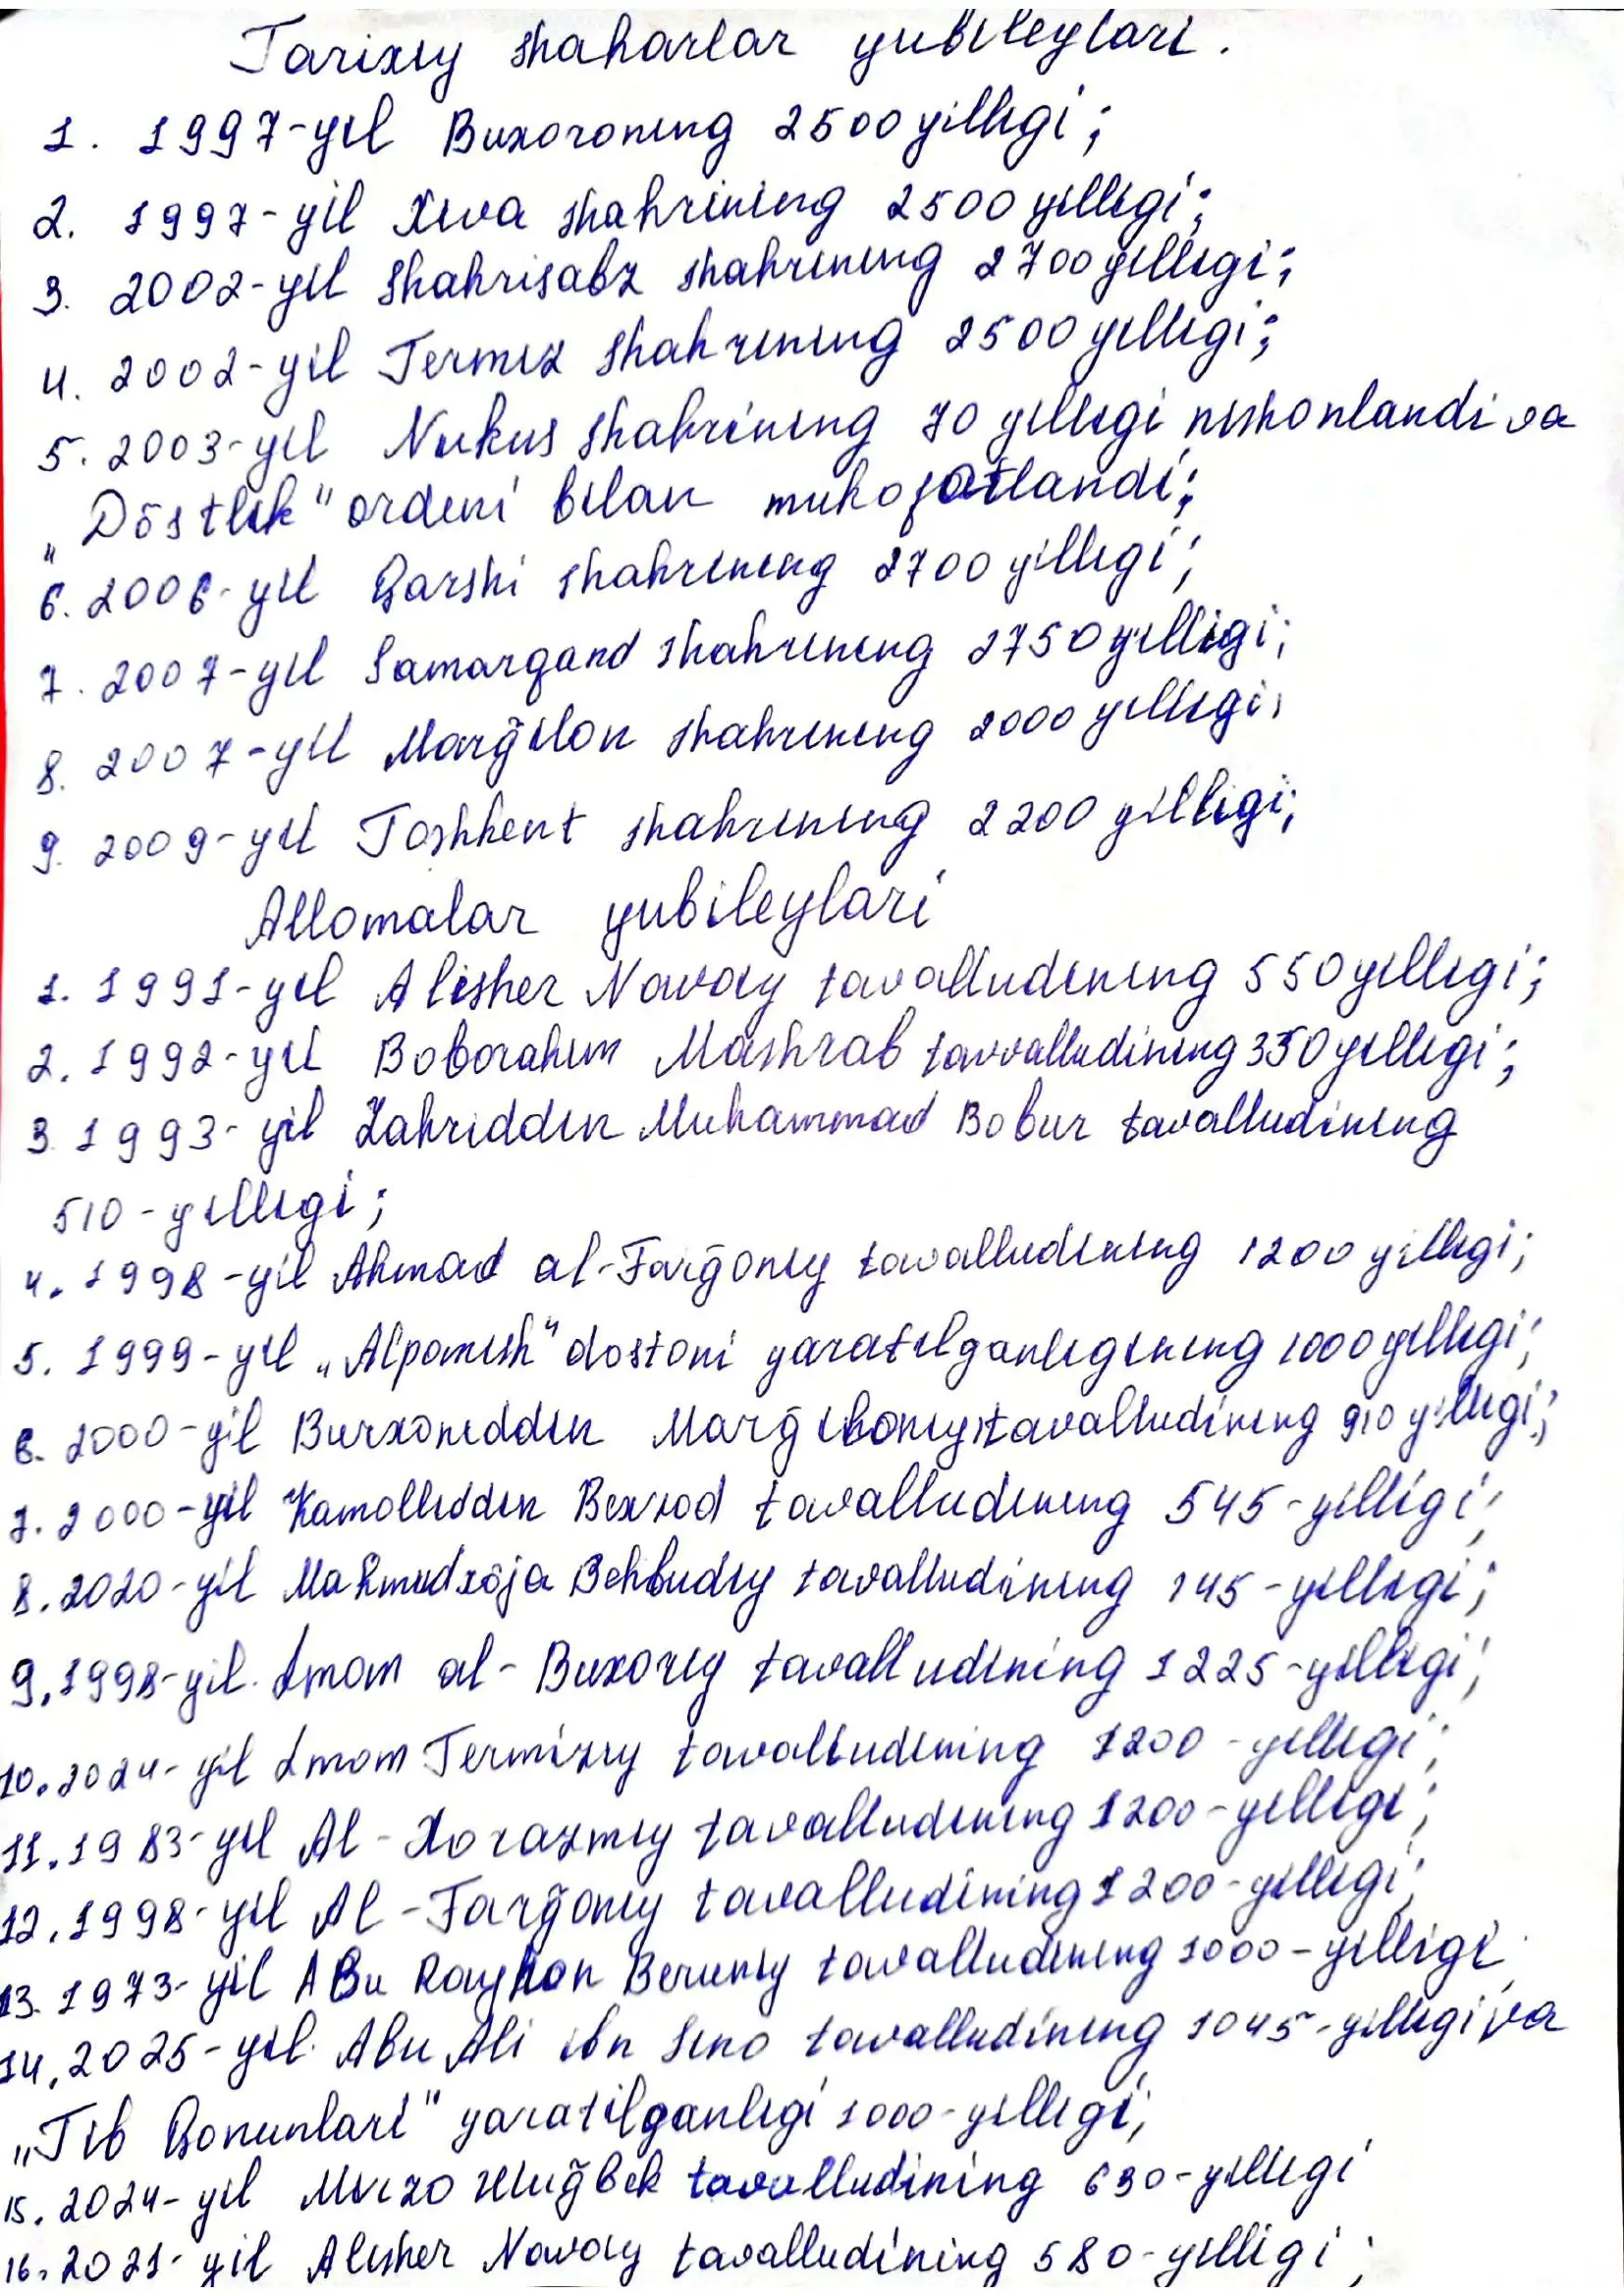 Tarixiy shaharlar yubileylari.
1. 1997-yil Buxoroning 2500 yilligi;
2. 1997-yil Xiva shahrining 2500 yilligi;
3. 2002-yil Shahrisabz shahrining 2700 yilligi;
4. 2002-yil Termiz shahrining 2500 yilligi;
5. 2003-yil Nukus shahrining 70 yilligi nishonlandi va
„Dōstlik“ ordeni bilan mukofotlandi;
6. 2006-yil Qarshi shahrining 2700 yilligi;
7. 2007-yil Samarqand shahrining 2750 yilligi;
8. 2007-yil Marḡilon shahrining 2000 yilligi;
9. 2009-yil Toshkent shahrining 2200 yilligi;
Allomalar yubileylari
1. 1991-yil Alisher Navoiy tavalludining 550 yilligi;
2. 1992-yil Boborahim Mashrab tavvalludining 350 yilligi;
3. 1993-yil Zahriddin Muhammad Bobur tavalludining
510-yilligi;
4. 1998-yil Ahmad al-Farḡoniy tavalludining 1200 yilligi;
5. 1999-yil „Alpomish“ dostoni yaratilganligining 1000 yilligi;
6. 2000-yil Burxoniddin Marḡiloniy tavalludining 910 yilligi;
7. 2000-yil Kamolliddin Bexzod tavalludining 545-yilligi;
8. 2020-yil Mahmudxōja Behbudiy tavalludining 145-yilligi;
9. 1998-yil. Imom al-Buxoriy tavalludining 1225-yilligi;
10. 2024-yil Imom Termiziy tavalludining 1200-yilligi;
11. 1983-yil Al-Xorazmiy tavalludining 1200-yilligi;
12. 1998-yil Al-Farḡoniy tavalludining 1200-yilligi;
13. 1973-yil ABu Rayhon Beruniy tavalludining 1000-yilligi;
14. 2025-yil. Abu Ali ibn Sino tavalludining 1045-yilligi va
„Tib Qonunlari“ yaratilganligi 1000-yilligi;
15. 2024-yil Mirzo Uluḡbek tavalludining 630-yilligi
16. 2021-yil Alisher Navoiy tavalludining 580-yilligi;